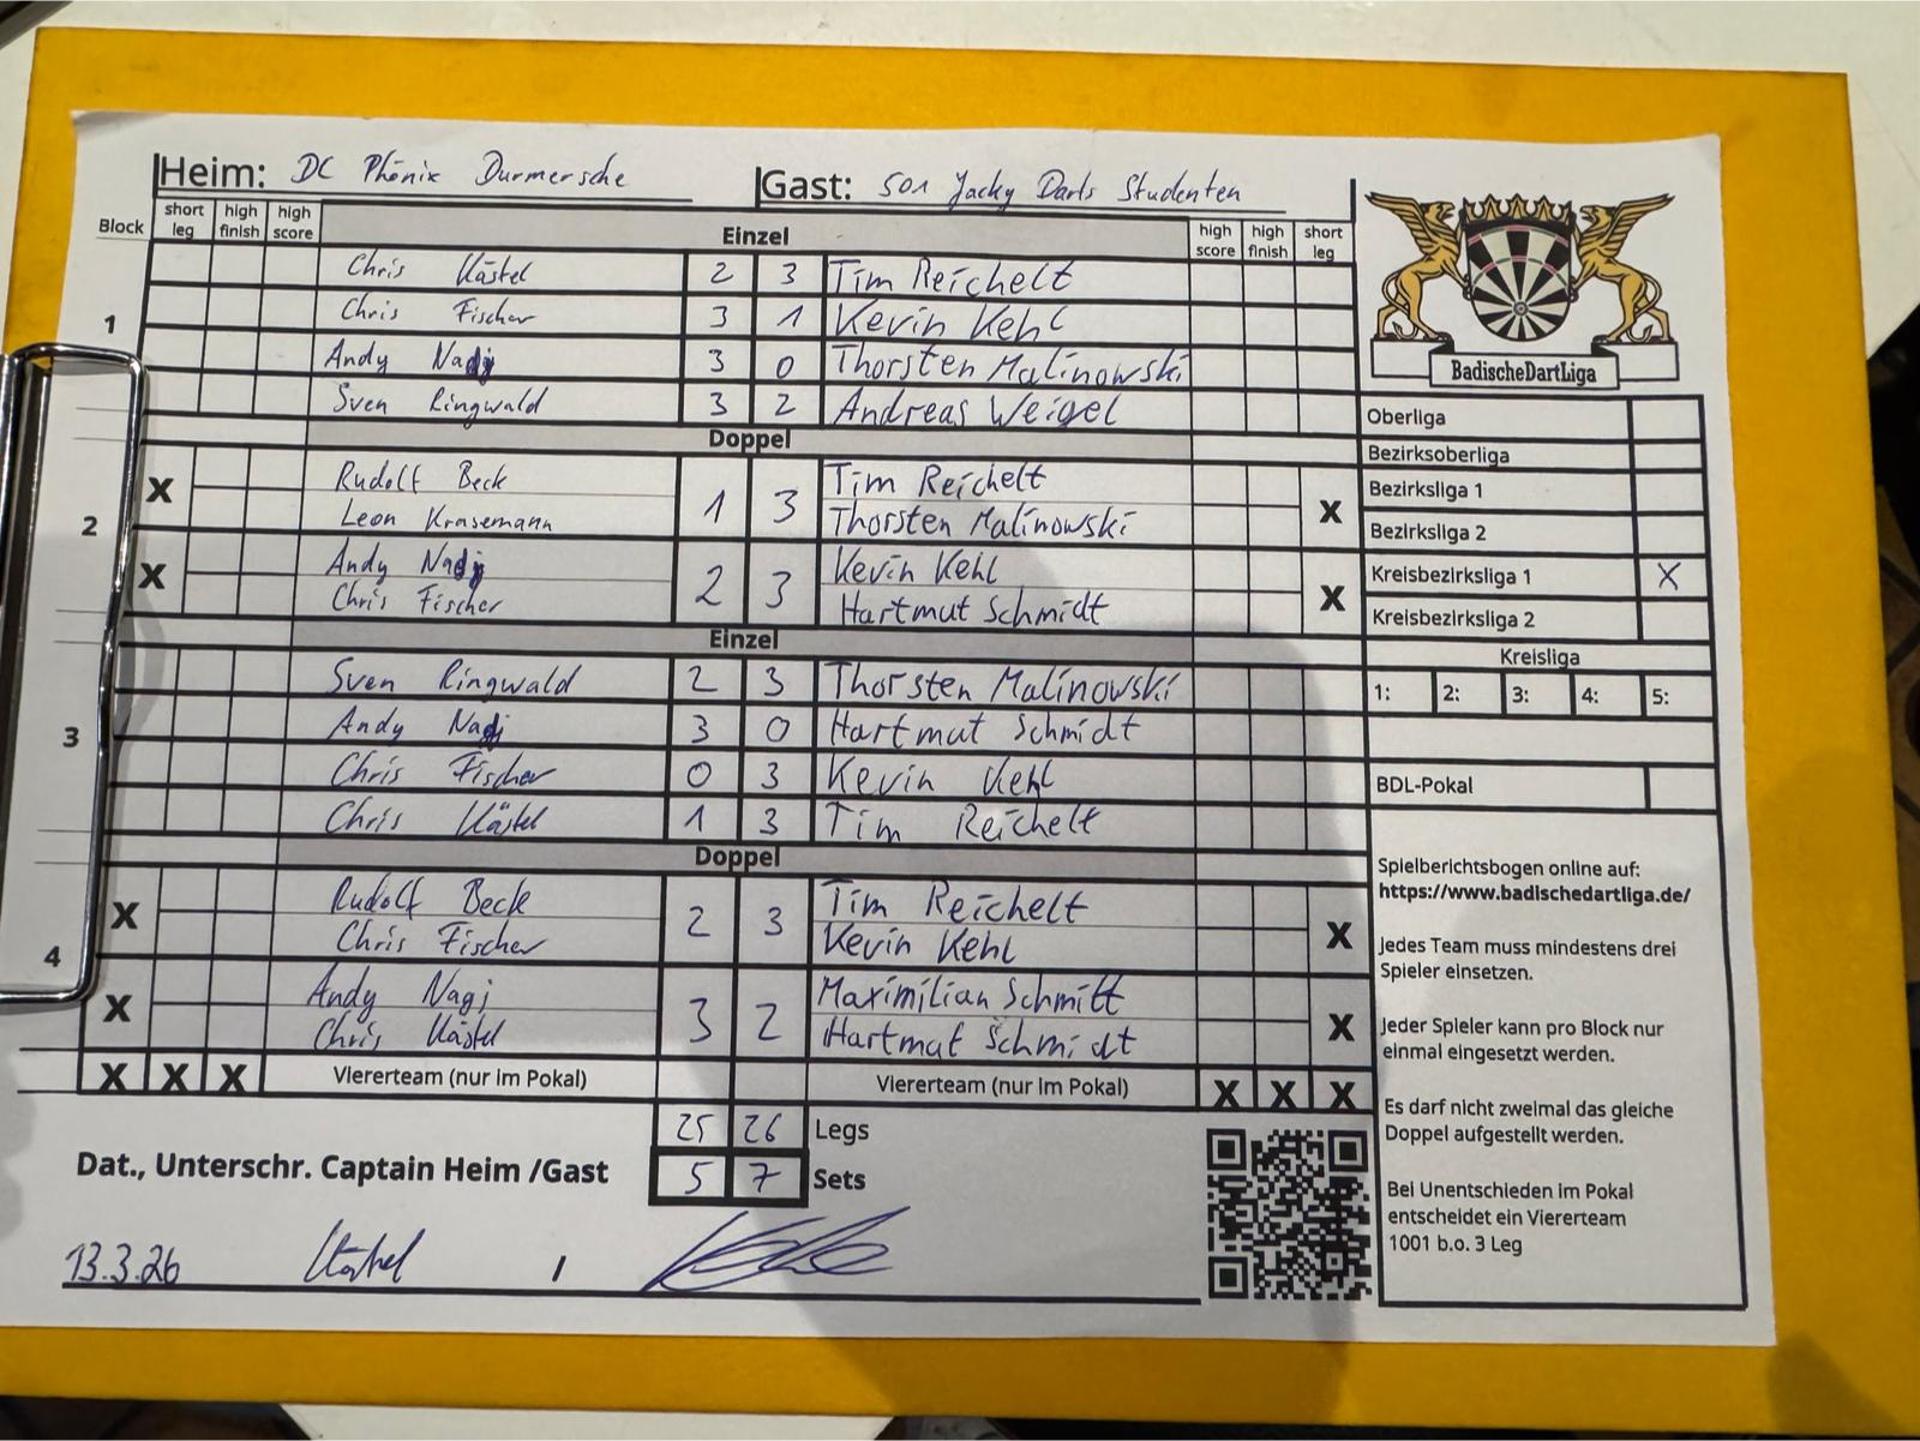 Heim: DC Phönix Durmersche Gast: 501 Jacky Darts Studenten
Block short leg high finish high score Einzel high score high finish short leg
1
Chris Kästel 2 3 Tim Reichelt
Chris Fischer 3 1 Kevin Kehl
Andy Nadj 3 0 Thorsten Malinowski
Sven Ringwald 3 2 Andreas Weigel
Doppel
2
X Rudolf Beck 1 3 Tim Reichelt X
Leon Krasemann Thorsten Malinowski
X Andy Nadj 2 3 Kevin Kehl X
Chris Fischer Hartmut Schmidt
Einzel
3
Sven Ringwald 2 3 Thorsten Malinowski
Andy Nadj 3 0 Hartmut Schmidt
Chris Fischer 0 3 Kevin Kehl
Chris Kästel 1 3 Tim Reichelt
Doppel
4
X Rudolf Beck 2 3 Tim Reichelt X
Chris Fischer Kevin Kehl
X Andy Nagj 3 2 Maximilian Schmitt X
Chris Kästel Hartmut Schmidt
X X X Viererteam (nur im Pokal) Viererteam (nur im Pokal) X X X
25 26 Legs
5 7 Sets
Dat., Unterschr. Captain Heim /Gast
13.3.26 /
BadischeDartLiga
Oberliga
Bezirksoberliga
Bezirksliga 1
Bezirksliga 2
Kreisbezirksliga 1 X
Kreisbezirksliga 2
Kreisliga
1: 2: 3: 4: 5:
BDL-Pokal
Spielberichtsbogen online auf:
https://www.badischedartliga.de/
Jedes Team muss mindestens drei
Spieler einsetzen.
Jeder Spieler kann pro Block nur
einmal eingesetzt werden.
Es darf nicht zweimal das gleiche
Doppel aufgestellt werden.
Bei Unentschieden im Pokal
entscheidet ein Viererteam
1001 b.o. 3 Leg